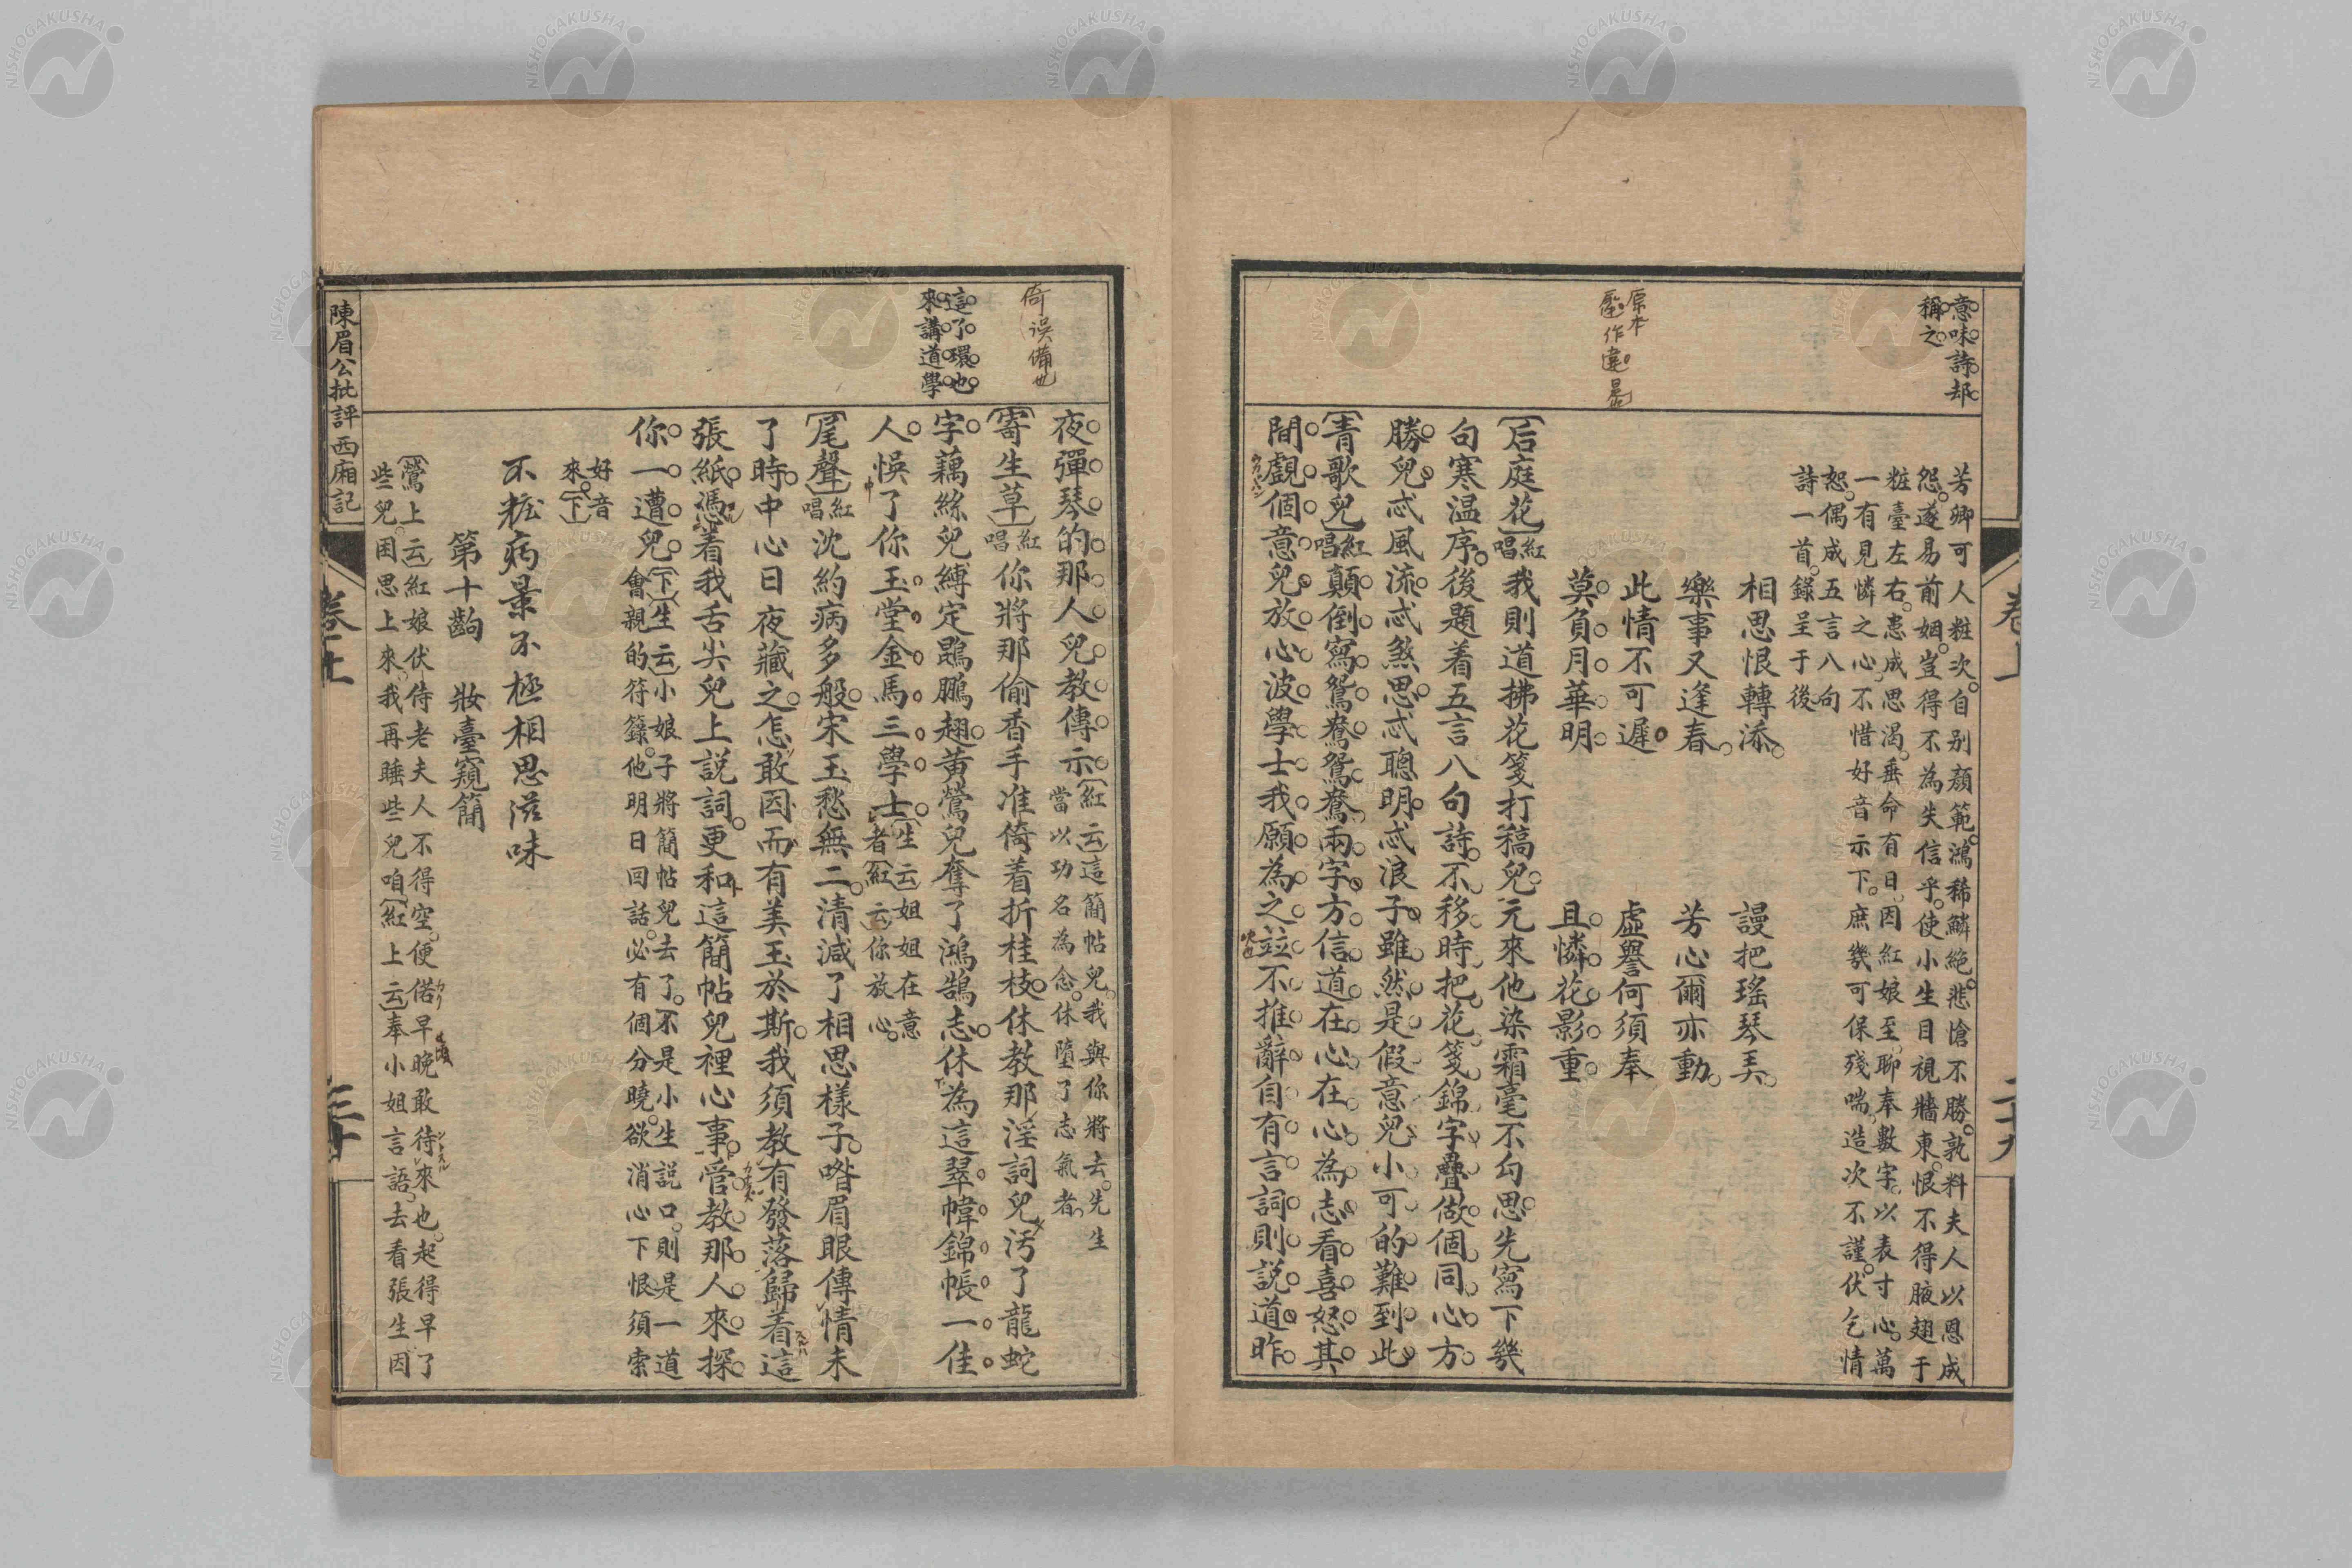 意味詩却
稱之
原本
作違是
芳卿可人粧次自別顏範鴻稀鱗絕悲愴不勝孰料夫人以恩成
怨遂易前姻豈得不為失信乎使小生目視牆東恨不得腋翅于
粧臺左右患成思渴垂命有日因紅娘至聊奉數字以表寸心萬
一有見憐之心不惜好音示下庶幾可保殘喘造次不謹伏乞情
恕偶成五言八句
詩一首錄呈于後
相思恨轉添 謾把瑤琴弄
樂事又逢春 芳心爾亦動
此情不可遲 虛譽何須奉
莫負月華明 且憐花影重
〔后庭花〕紅唱我則道拂花箋打稿兒元來他染霜毫不勾思先寫下幾
句寒温序後題着五言八句詩不移時把花箋錦字疊做個同心方
勝兒忒風流忒煞思忒聰明忒浪子雖然是假意兒小可的難到此
〔青歌兒〕紅唱顛倒寫鴛鴦鴛鴦兩字方信道在心在心為志看喜怒其
間覷個意兒放心波學士我願為之竝不推辭自有言詞則説道昨
卷上
二十九
倚誤備也
這了環也
來講道學
夜彈琴的那人兒教傳示〔紅云〕這簡帖兒我與你將去先生
當以功名為念休墮了志氣者
〔寄生草〕紅唱你將那偷香手准倚着折桂枝休教那淫詞兒汚了龍蛇
字藕絲兒縛定鵾鵬翅黃鶯兒奪了鴻鵠志休為這翠幃錦帳一佳
人悞了你玉堂金馬三學士〔生云〕姐姐在意
者〔紅云〕你放心
〔尾聲〕紅唱沈約病多般宋玉愁無二清減了相思樣子喒眉眼傳情未
了時中心日夜藏之怎敢因而有美玉於斯我須教有發落歸着這
張紙憑着我舌尖兒上説詞更和這簡帖兒裡心事管教那人來探
你一遭兒〔下〕〔生云〕小娘子將簡帖兒去了不是小生説口則是一道
會親的符籙他明日回話必有個分曉欲消心下恨須索
好音
來〔下〕
不粧病景不極相思滋味
第十齣 妝臺窺簡
〔鶯上云〕紅娘伏侍老夫人不得空便偌早晚敢待來也起得早了
些兒困思上來我再睡些兒咱〔紅上云〕奉小姐言語去看張生因
陳眉公批評西廂記
卷上
三十